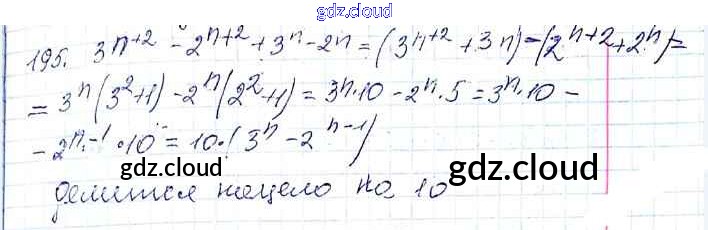 gdz.cloud
195. 3ⁿ⁺² - 2ⁿ⁺² + 3ⁿ - 2ⁿ = (3ⁿ⁺² + 3ⁿ) - (2ⁿ⁺² + 2ⁿ) =
= 3ⁿ(3² + 1) - 2ⁿ(2² + 1) = 3ⁿ · 10 - 2ⁿ · 5 = 3ⁿ · 10 -
- 2ⁿ⁻¹ · 10 = 10 · (3ⁿ - 2ⁿ⁻¹)
gdz.cloud gdz.cloud
делится нацело на 10